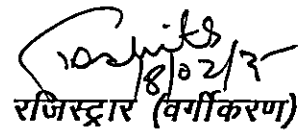 8/02/25
रजिस्ट्रार (वर्गीकरण)